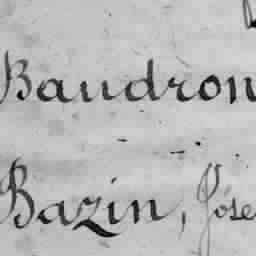 Baudron
Bazin, José